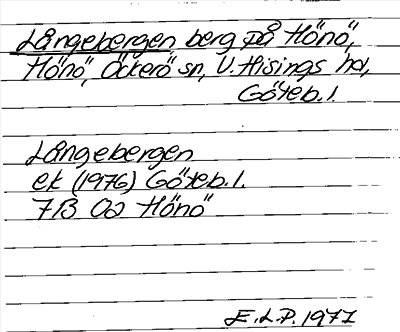 Långebergen, berg på Hönö,
Hönö, Öckerö sn, V. Hisings hd,
Göteb. l.
Långebergen
ek (1976) Göteb. l.
7B 0a Hönö
E.L.P. 1977